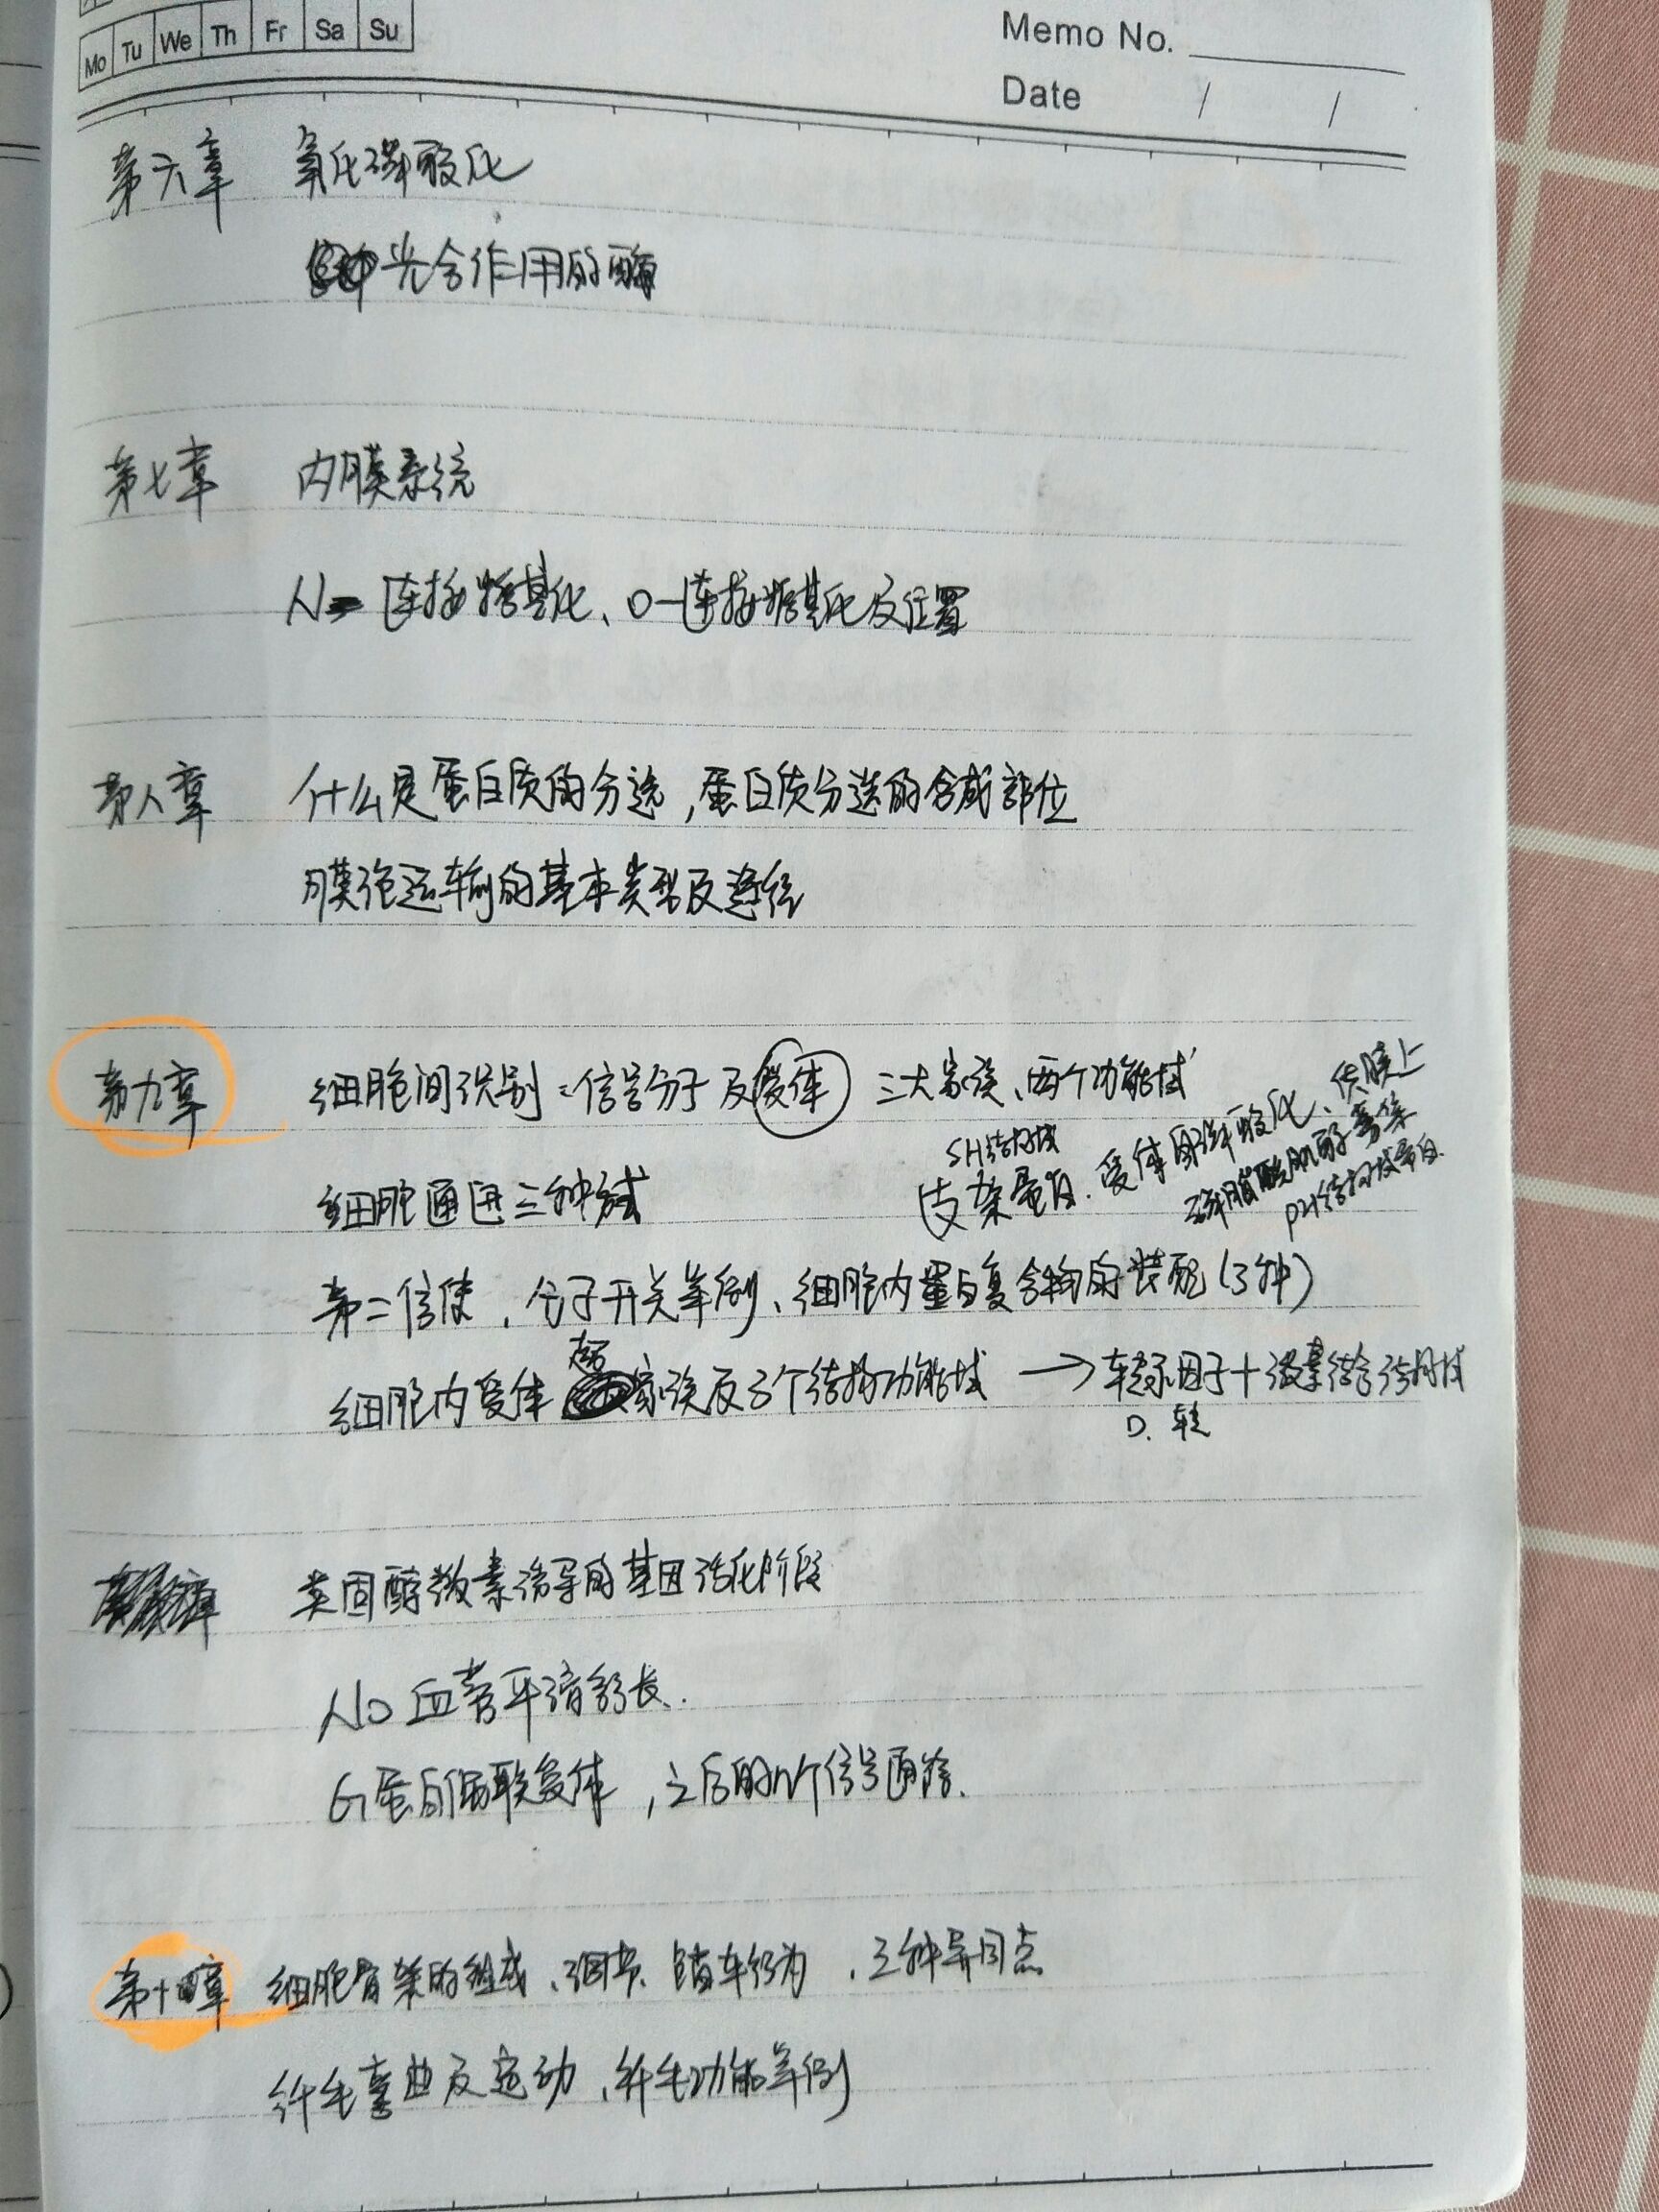 Mo Tu We Th Fr Sa Su
Memo No.
Date / /
第六章 氧化磷酸化
光合作用的酶
第七章 内膜系统
N-连接糖基化、O-连接糖基化及位置
第八章 什么是蛋白质的分选,蛋白质分选的合成部位
膜泡运输的基本类型及途径
第九章 细胞间识别:信号分子及受体 三大家族、两个功能域
细胞通迅三种方式
SH结构域
支架蛋白、受体尾磷酸化、供膜上
磷脂酰肌醇募集
PH结构域蛋白
第二信使,分子开关举例、细胞内蛋白复合物的装配(3种)
细胞内受体超家族及3个结构功能域 → 转录因子+激素结合结构域
D. 转
类固醇激素诱导的基因活化阶段
NO 血管平滑舒长.
G蛋白偶联受体,之后的n个信号通路.
第十章 细胞骨架的组成、细节、踏车行为、三种异同点
纤毛弯曲及运动、纤毛功能举例